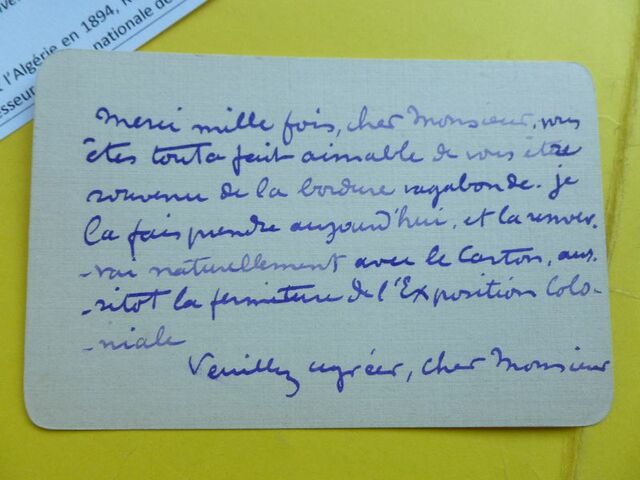 l'Algérie en 1894,
nationale de
Merci mille fois, cher Monsieur, vous
êtes tout à fait aimable de vous être
souvenu de la bordure vagabonde. Je
la fais prendre aujourd'hui, et la renver-
-rai naturellement avec le Carton, aus-
-sitot la fermeture de l'Exposition Colo-
-niale
Veuillez agréer, cher Monsieur